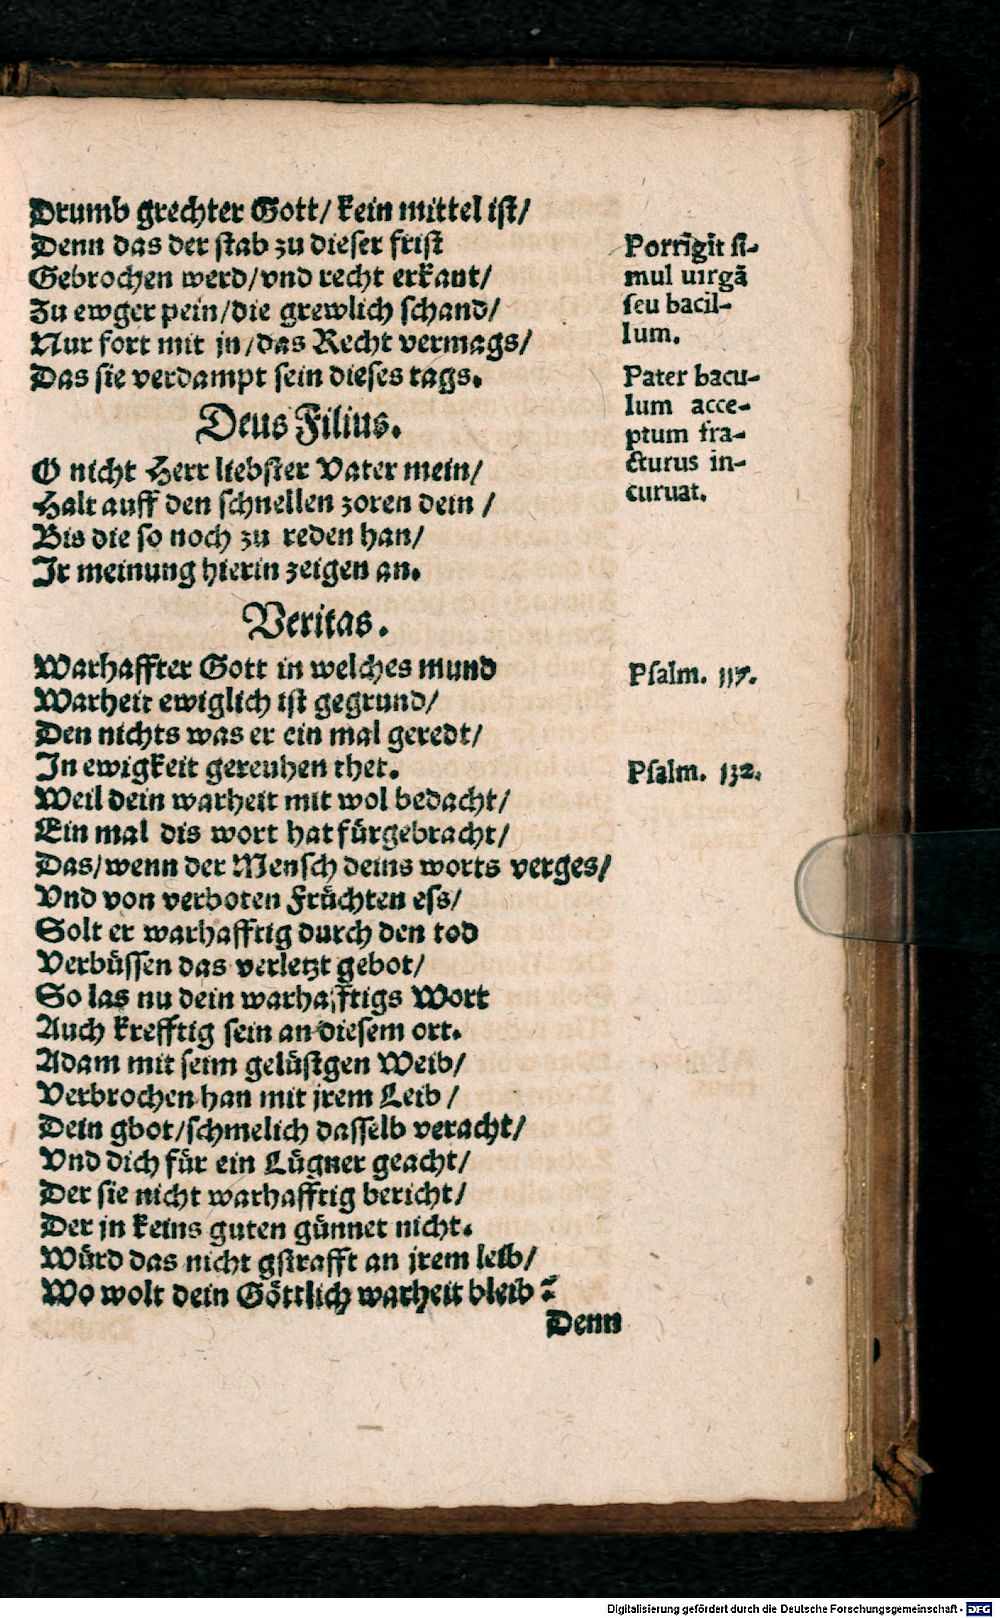 Drumb grechter Gott/ kein mittel ist/
Denn das der stab zu dieser frist
Gebrochen werd/vnd recht erkant/
Zu ewger pein/die grewlich schand/
Nur fort mit jn/das Recht vermags/
Das sie verdampt sein dieses tags.
Porrigit si-
mul uirgã
seu bacil-
lum.
Pater bacu-
lum acce-
ptum fra-
cturus in-
curuat.
Deus Filius.
O nicht Herr liebster Vater mein/
Halt auff den schnellen zoren dein /
Bis die so noch zu reden han/
Ir meinung hierin zeigen an.
Veritas.
Warhaffter Gott in welches mund
Warheit ewiglich ist gegrund/
Den nichts was er ein mal geredt/
In ewigkeit gereuhen thet.
Psalm. 117.
Psalm. 132.
Weil dein warheit mit wol bedacht/
Ein mal dis wort hat fürgebracht/
Das/wenn der Mensch deins worts verges/
Vnd von verboten Früchten ess/
Solt er warhafftig durch den tod
Verbüssen das verletzt gebot/
So las nu dein warhafftigs Wort
Auch krefftig sein an diesem ort.
Adam mit seim gelüstgen Weib/
Verbrochen han mit jrem Leib /
Dein gbot/schmelich dasselb veracht/
Vnd dich für ein Lügner geacht/
Der sie nicht warhafftig bericht/
Der jn keins guten günnet nicht.
Würd das nicht gstrafft an jrem leib/
Wo wolt dein Göttlich warheit bleib?
Denn
Digitalisierung gefördert durch die Deutsche Forschungsgemeinschaft - DFG